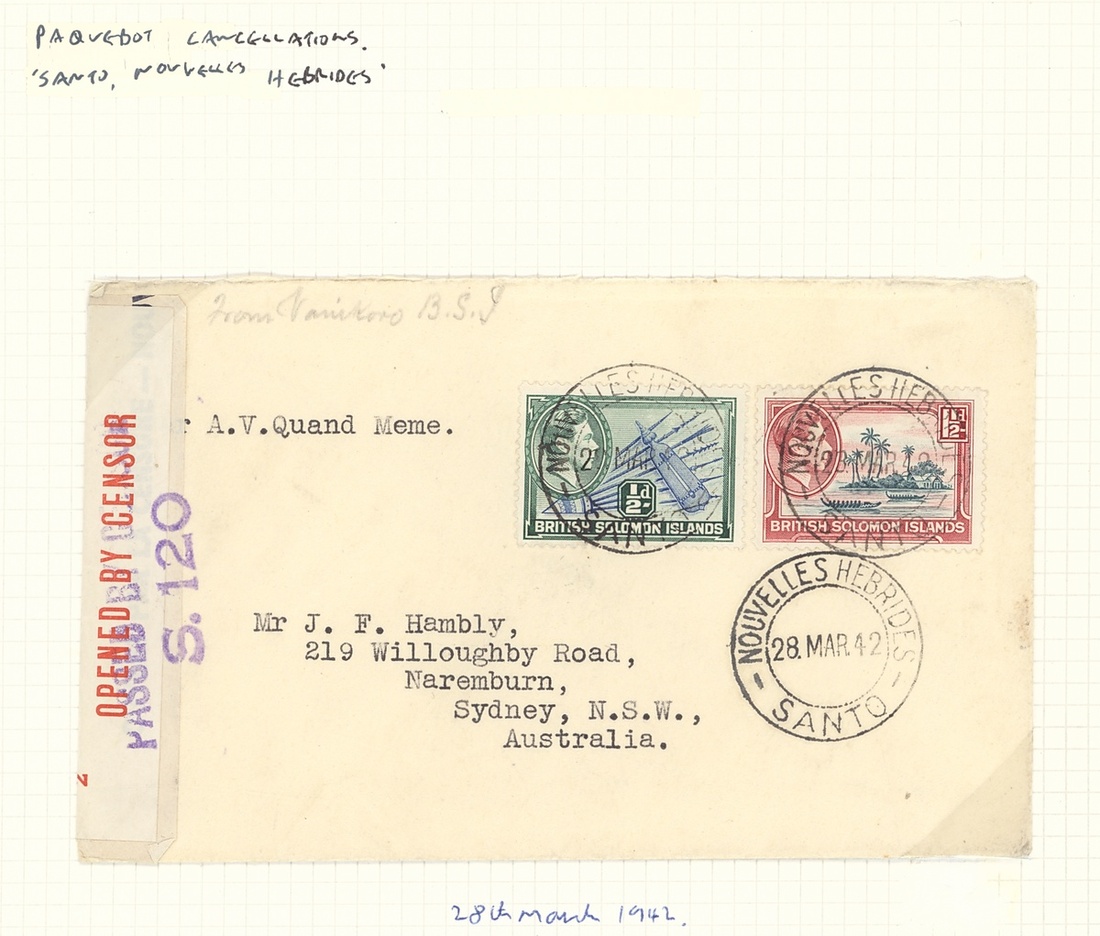 PAQUEBOT CANCELLATIONS.
'SANTO, NOUVELLES HEBRIDES'
From Vanikoro B.S.I
r A.V.Quand Meme.
NOUVELLES HEB
2 MAR
SANTO
½d
BRITISH SOLOMON ISLANDS
NOUVELLES HEB
28 MAR
SANTO
1½d
BRITISH SOLOMON ISLANDS
NOUVELLES HEBRIDES
28.MAR.42
SANTO
Mr J. F. Hambly,
219 Willoughby Road,
Naremburn,
Sydney, N.S.W.,
Australia.
OPENED BY CENSOR
PASSED BY
S. 120
2
28th March 1942.